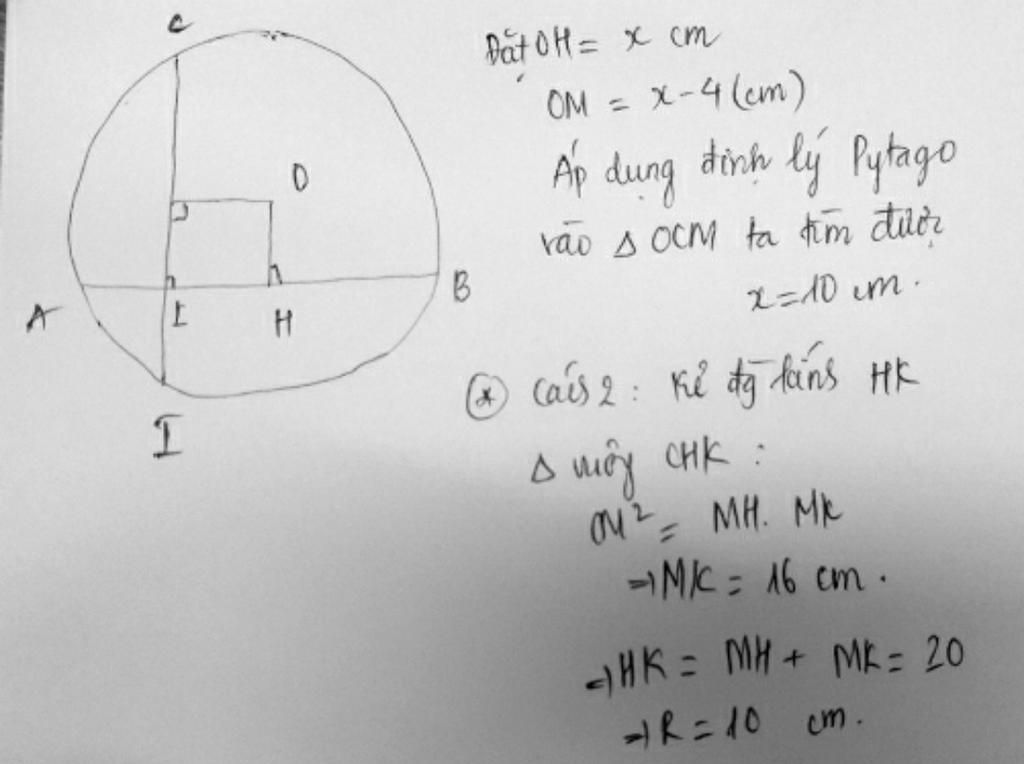 C
O
A
I
H
B
I
Đặt OH = x cm
OM = x - 4 (cm)
Áp dụng định lý Pytago
vào Δ OCM ta tìm được
x = 10 cm.
* Cách 2: Kẻ đg kính HK
Δ vuông CHK :
CM² = MH. MK
⇒ MK = 16 cm.
⇒ HK = MH + MK = 20
⇒ R = 10 cm.